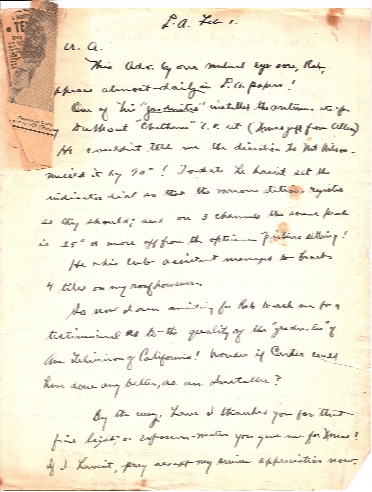 L.A. Feb 1.
This Adv. by our mutual eye sore, Rob,
appears almost daily in L.A. papers!
One of his "graduates" installed the antenna
He couldn't tell me the direction to Mt Wilson-
missed it by 90°! To date he hasn't set the
indicator dial so that the various stations register
as they should; and on 3 channels the sound peak
is 15° or more off from the optimum picture setting!
He & his assistant managed to break
4 tiles on my roof however.
Am now down waiting for Rob to ask me for a
testimonial as to the quality of the "graduates" of
Am Television of California! Wonder if Curtis could
have done any better, as an Installer?
By the way, have I thanked you for that
fine light- or exposure-meter you gave me for Xmas?
If I haven't, pray accept my sincere appreciation now.